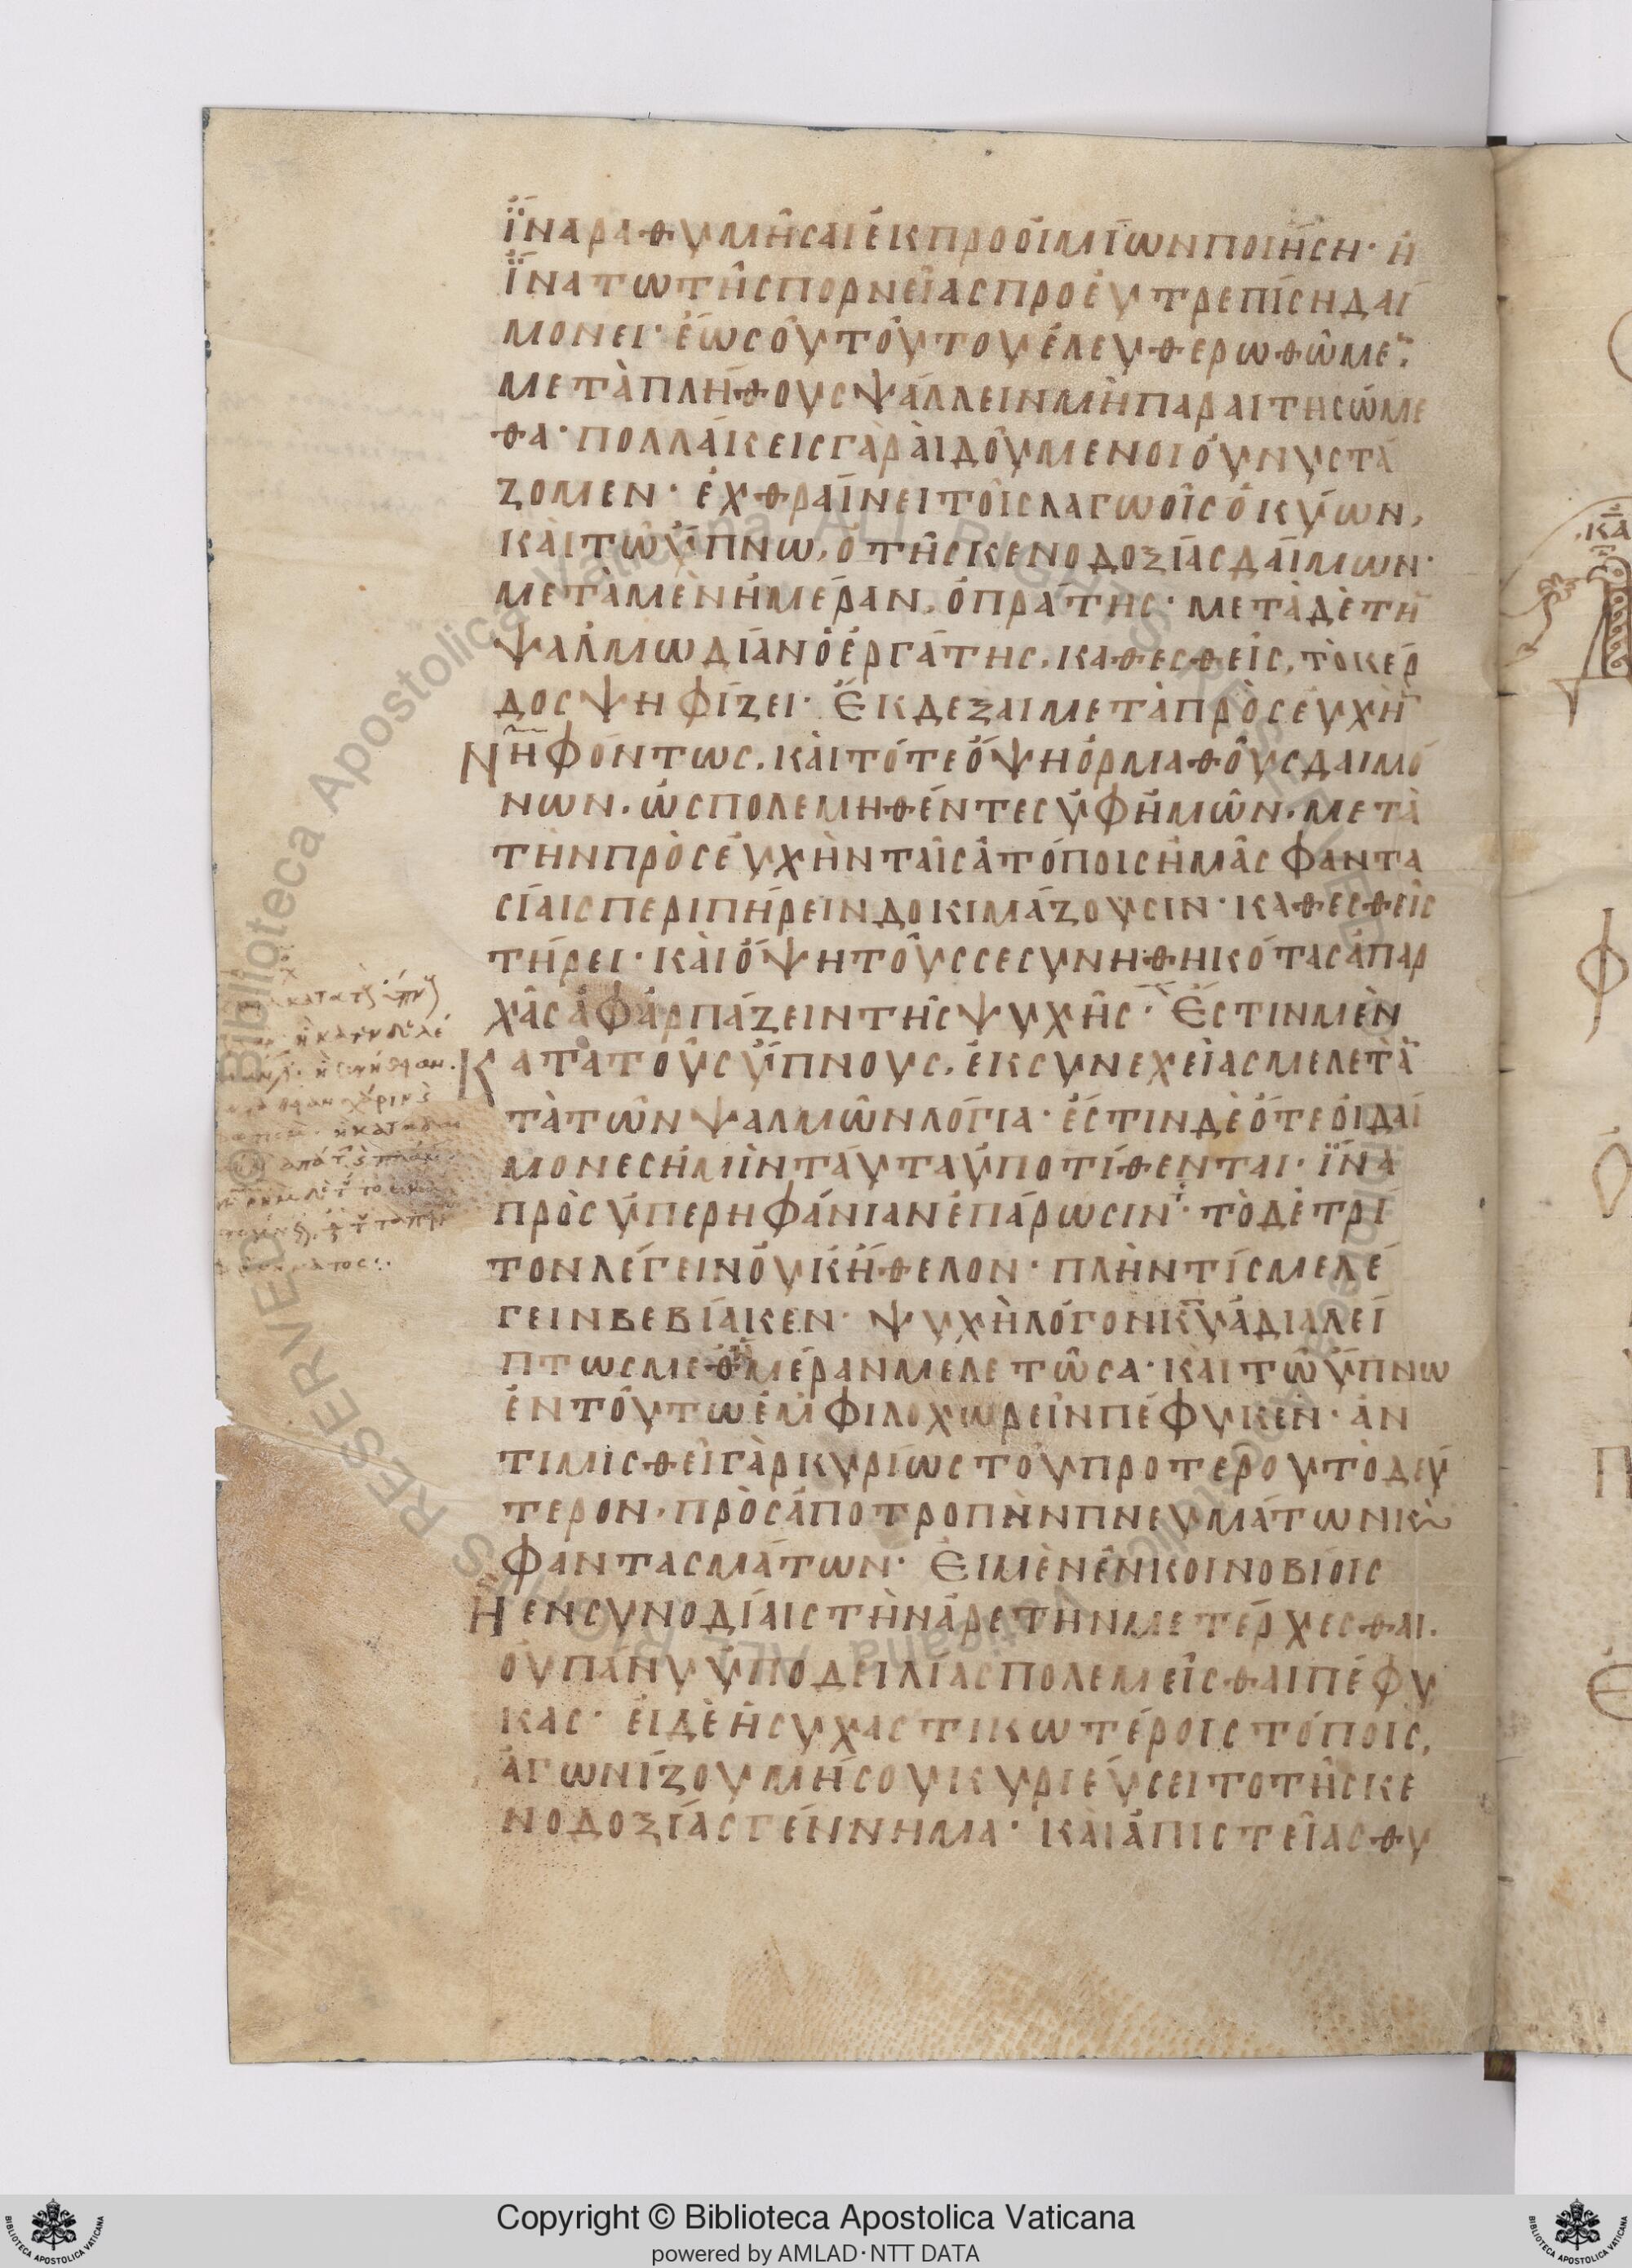 ἵ̈ναραθυμῆσαιἐκπροοιμίωνποιήση· ἢ
ἵ̈νατωτῆςπορνείαςπροευτρεπίσηδαί
μονει· ἕωςοὗτούτουἐλευθερωθῶμεν:
μετὰπλήθουςψάλλεινμὴπαραιτησώμε
θα· πολλάκειςγὰρἀιδούμενοιὀυνυστά
ζομεν· ἐχθραίνειτοῖςλαγωοῖςὁκύων,
κὰιτῶὕπνω, ὁτῆςκενοδοξίαςδαίμων·
μετὰμὲνἡμέραν, ὁπράτης· μετὰδὲτὴν
ψαλμωδίανὁἐργάτης, καθεσθεὶς, τὸκέρ
δοςψηφίζει· Ἐκδεξαιμετὰπρὸσευχὴν
Νηφόντως, κὰιτότεόψηὁρμαθοὺςδαιμό
νων, ὡςπολεμηθέντεςὑφἡμῶν, μετὰ
τὴνπρὸσευχὴνταῖςἀτόποιςἡμᾶςφαντα
σίαιςπεριπήρεινδοκιμάζουσιν· καθεσθεὶς
τήρει· κὰιόψητοὺςσεσυνηθηκόταςἀπαρ
χὰςἀφαρπάζειντῆςψυχῆς· Ἔστινμὲν
Κατατοὺςὕπνους, ἐκσυνεχείαςμελετᾶν
τὰτῶνψαλμῶνλόγια· ἔστινδὲὅτεὁιδαί
μονεςἡμῖνταύταὑποτίθενται· ἵ̈να
πρὸςὑπερηφάνιανἐπάρωσιν· τὸδὲτρί
τονλέγεινὀυκἤθελον· πλὴντίςμελέ
γεινβεβίακεν· ψυχὴλόγονκ̅υ̅ἀδιαλεί
πτωςμεθἡμέρανμελετῶσα· κὰιτῶὕπνω
ἐντούτωἐμφιλοχωρεῖνπέφυκεν· ἀν
τιμισθεῖγὰρκυρίωςτοῦπροτέρουτὸδεύ
τερον, πρὸςἀποτροπὴνπνευμάτωνκ̀
φαντασμάτων· Ἐιμὲνἐνκοινοβίοις
Ἢἐνσυνοδίαιςτὴνἀρετηνμετέρχεσθαι·
ὀυπάνυὑποδειλίαςπολεμεῖσθαιπέφυ
κας· ἐιδὲἡσυχαστικωτέροιςτόποις,
ἀγωνίζουμήσουκυριεύσειτοτῆςκε
νοδοξίαςγέννημα· κὰιἀπιστείαςθυ
,κ̅α̅
Φ
Π
Copyright © Biblioteca Apostolica Vaticana
powered by AMLAD·NTT DATA